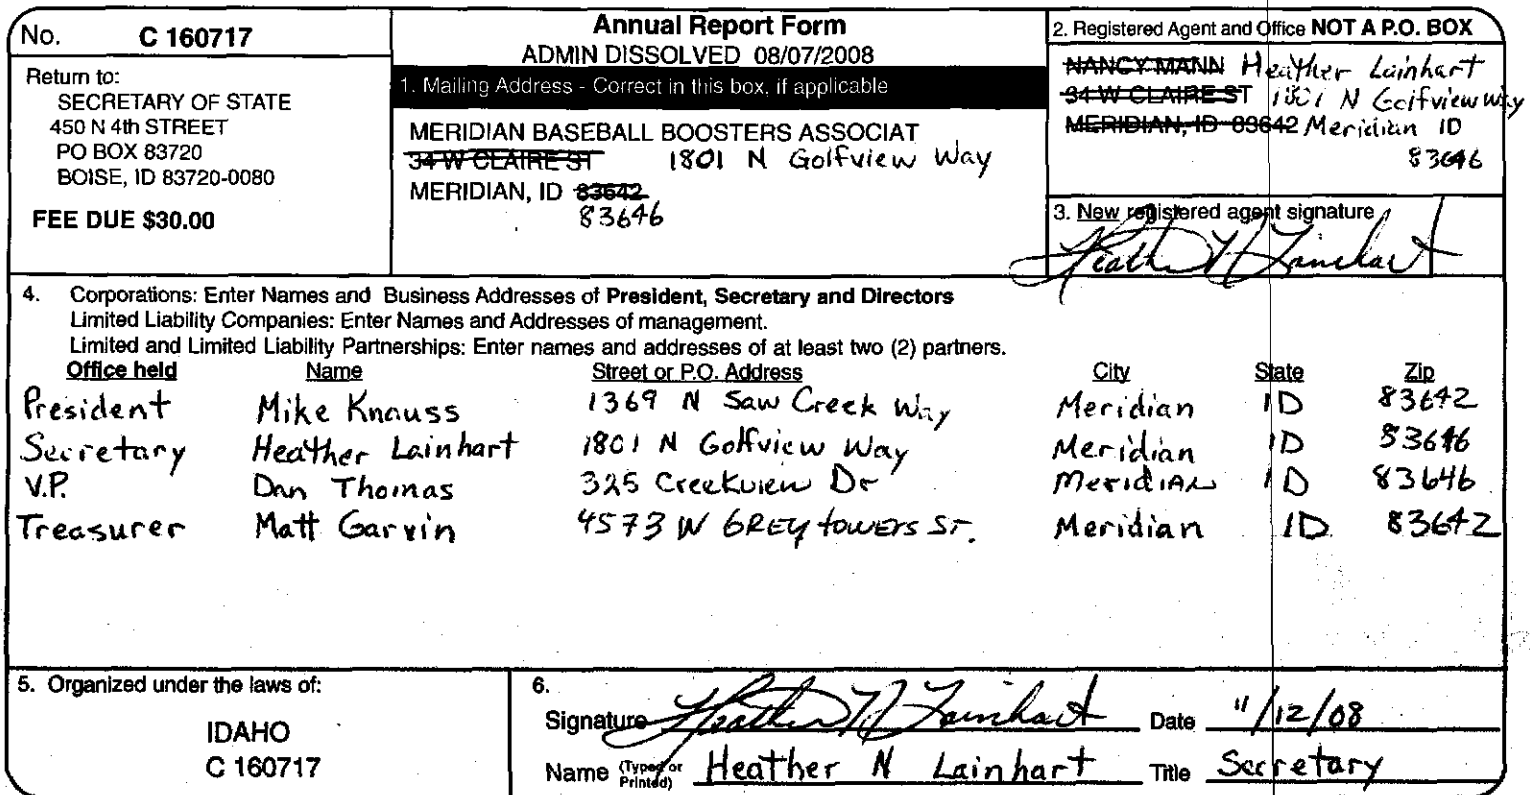 No. C 160717
Return to:
SECRETARY OF STATE
450 N 4th STREET
PO BOX 83720
BOISE, ID 83720-0080
FEE DUE $30.00
Annual Report Form
ADMIN DISSOLVED 08/07/2008
1. Mailing Address - Correct in this box, if applicable
MERIDIAN BASEBALL BOOSTERS ASSOCIAT
34 W CLAIRE ST 1801 N Golfview Way
MERIDIAN, ID 83642
83646
2. Registered Agent and Office NOT A P.O. BOX
NANCY MANN Heather Lainhart
34 W CLAIRE ST 1801 N Golfview Way
MERIDIAN, ID 83642 Meridian ID
83646
3. New registered agent signature
Heather N Lainhart
4. Corporations: Enter Names and Business Addresses of President, Secretary and Directors
Limited Liability Companies: Enter Names and Addresses of management.
Limited and Limited Liability Partnerships: Enter names and addresses of at least two (2) partners.
Office held Name Street or P.O. Address City State Zip
President Mike Knauss 1369 N Saw Creek Way Meridian ID 83642
Secretary Heather Lainhart 1801 N Golfview Way Meridian ID 83646
V.P. Dan Thomas 325 Creekview Dr Meridian ID 83646
Treasurer Matt Garvin 4573 W Grey towers St. Meridian ID 83642
5. Organized under the laws of:
IDAHO
C 160717
6.
Signature Heather N Lainhart Date 11/12/08
Name (Typed or Printed) Heather N Lainhart Title Secretary